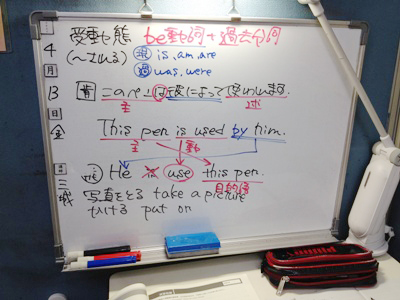 4月13日金
受動態 be動詞+過去分詞
(～される) 現 is, am, are
過 was, were
このペンは彼によって使われます。
主 述
This pen is used by him.
主 動
He is use this pen.
目的語
写真をとる take a picture
つける put on